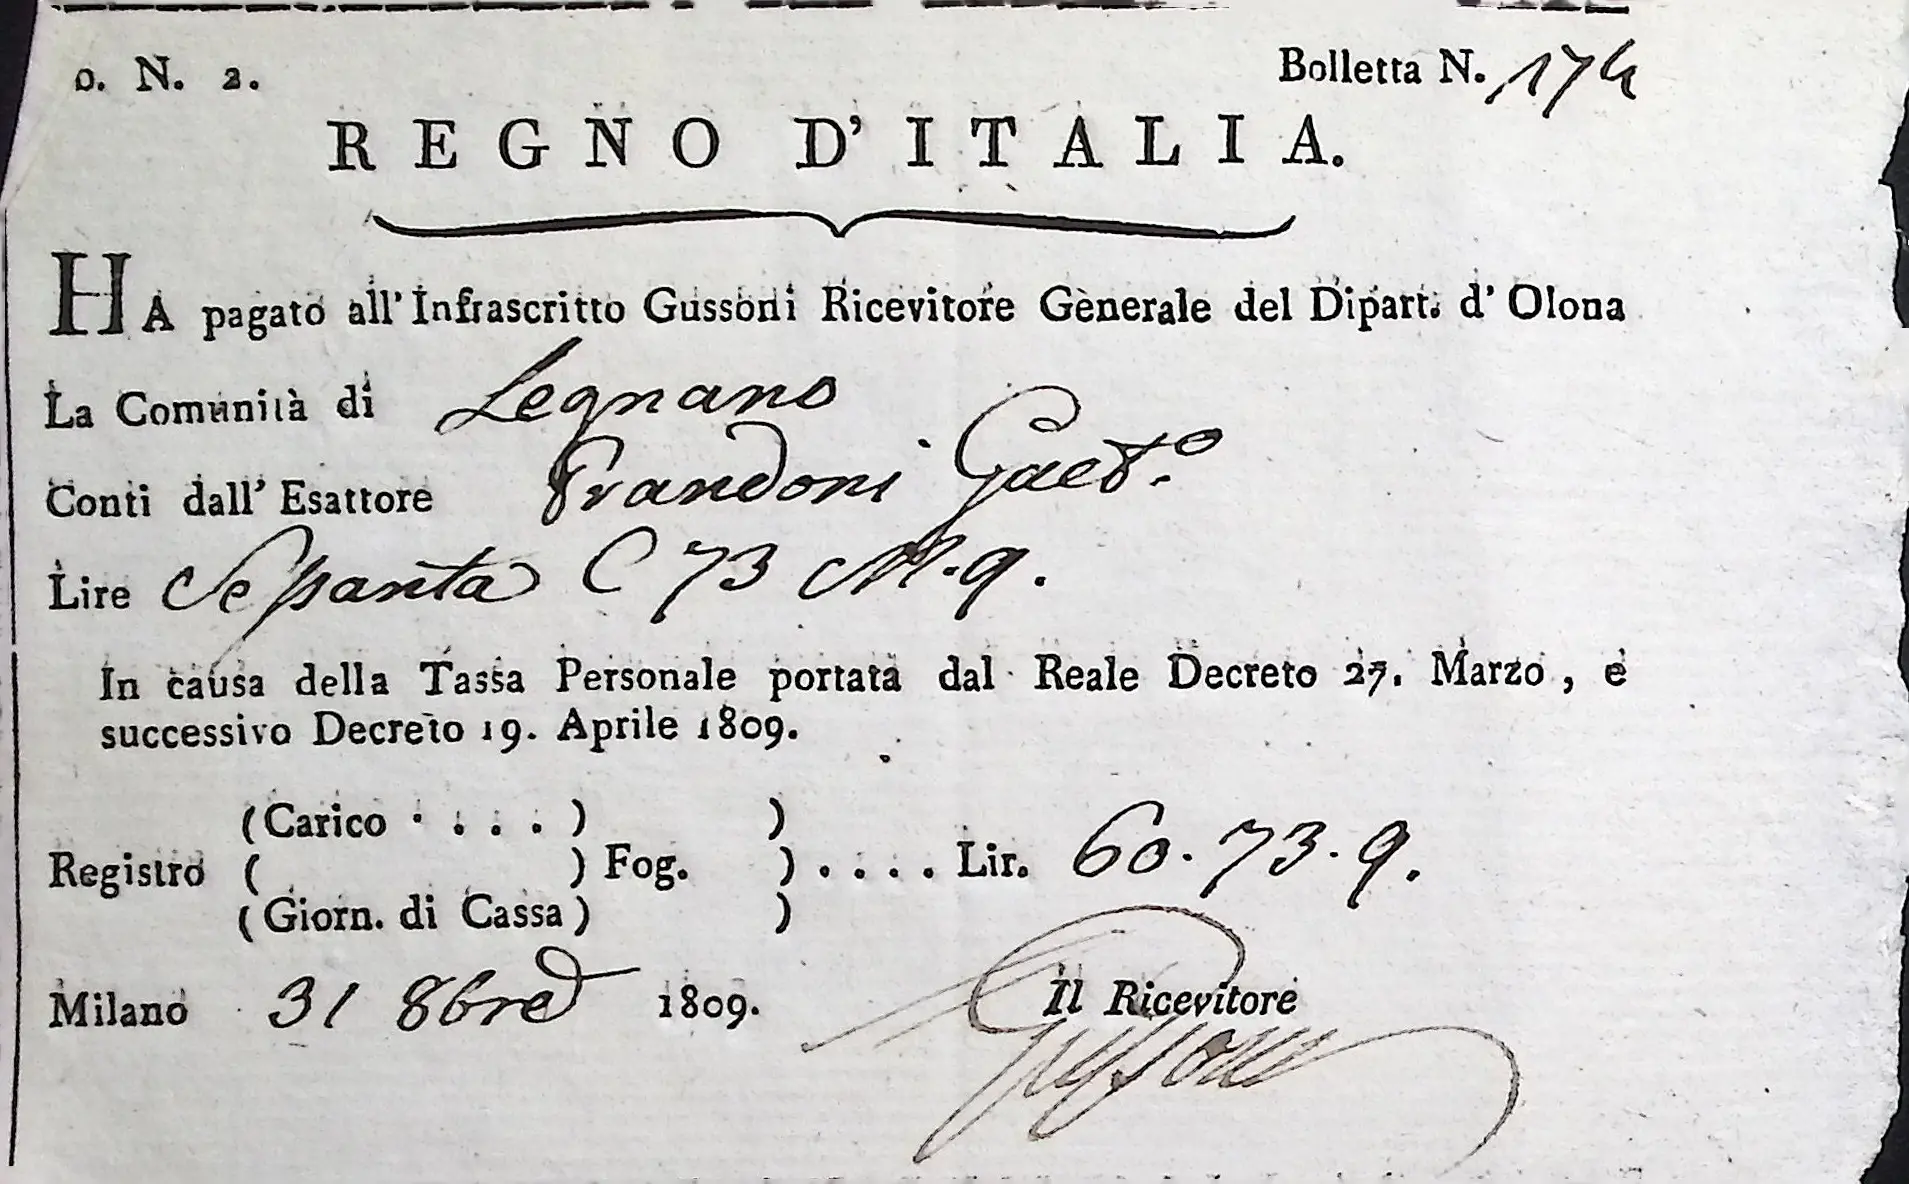 o. N. 2.
Bolletta N. 174
REGNO D'ITALIA.
HA pagato all'Infrascritto Gussoni Ricevitore Generale del Dipart. d'Olona
La Comunità di Legnano
Conti dall'Esattore Prandoni Gaet.º
Lire Sessanta C 73 M. 9.
In causa della Tassa Personale portata dal Reale Decreto 27. Marzo, e
successivo Decreto 19. Aprile 1809.
(Carico . . . . ) )
Registro ( ) Fog. ) . . . . Lir. 60. 73. 9.
(Giorn. di Cassa) )
Milano 31 8bre 1809. Il Ricevitore
Gussoni